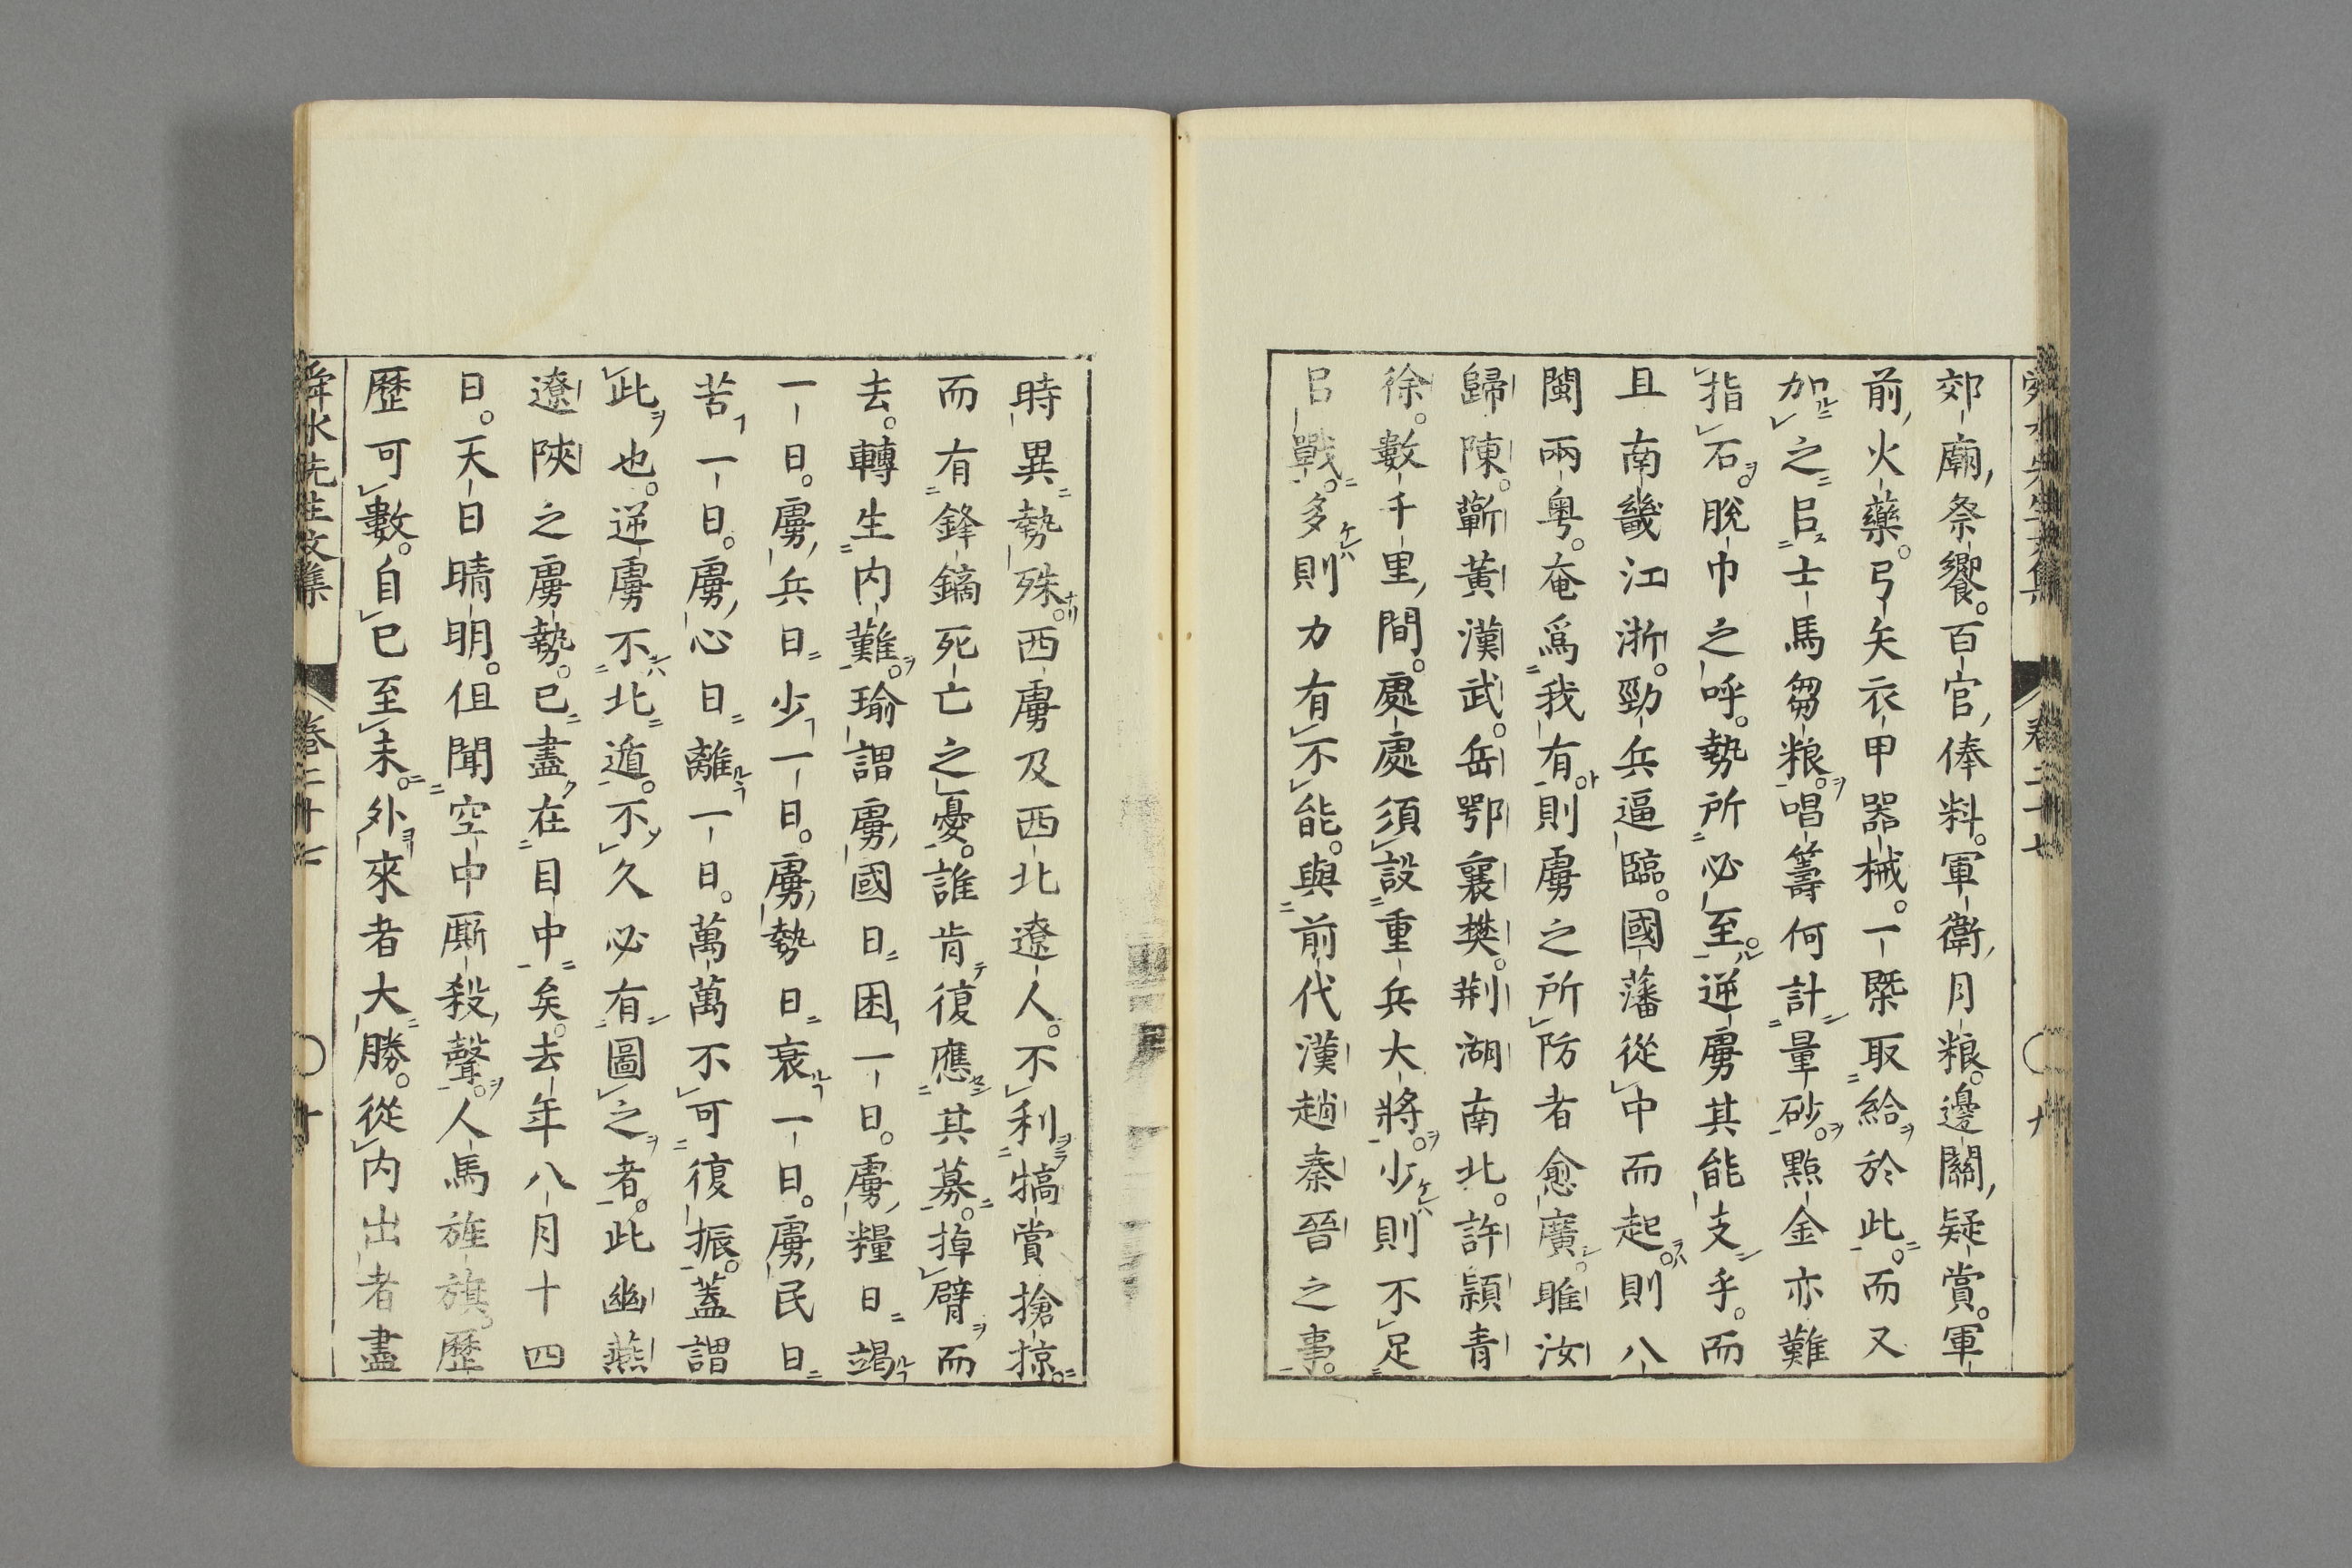 舜水先生文集　卷二十七　九
郊廟祭饗。百官俸料。軍衛月粮。邊關疑賞。軍
前火藥。弓矢衣甲器械。一槩取給於此。而又
加之㠯士馬芻粮。唱籌何計量砂。點金亦難
指石。脫巾之呼。勢所必至。逆虜其能支乎。而
且南畿江浙。勁兵逼臨。國藩從中而起。則八
閩兩粤。奄爲我有。則虜之所防者愈廣。睢汝
歸陳。蘄黃漢武。岳鄂襄樊。荆湖南北。許頴青
徐。數千里間。處處須設重兵大將。少則不足
㠯戰。多則力有不能。與前代漢趙秦晉之事。
時異勢殊。西虜及西北遼人。不利犒賞搶掠。
而有鋒鏑死亡之憂。誰肯復應其募。掉臂而
去。轉生内難。瑜謂虜國日困一日。虜糧日竭
一日。虜兵日少一日。虜勢日衰一日。虜民日
苦一日。虜心日離一日。萬萬不可復振。蓋謂
此也。逆虜不北遁。不久必有圖之者。此幽燕
遼陝之虜勢。已盡在目中矣。去年八月十四
日。天日晴明。但聞空中厮殺聲。人馬旌旗。歷
歷可數。自巳至未。外來者大勝。從内出者盡
舜水先生文集　卷二十七　〇十